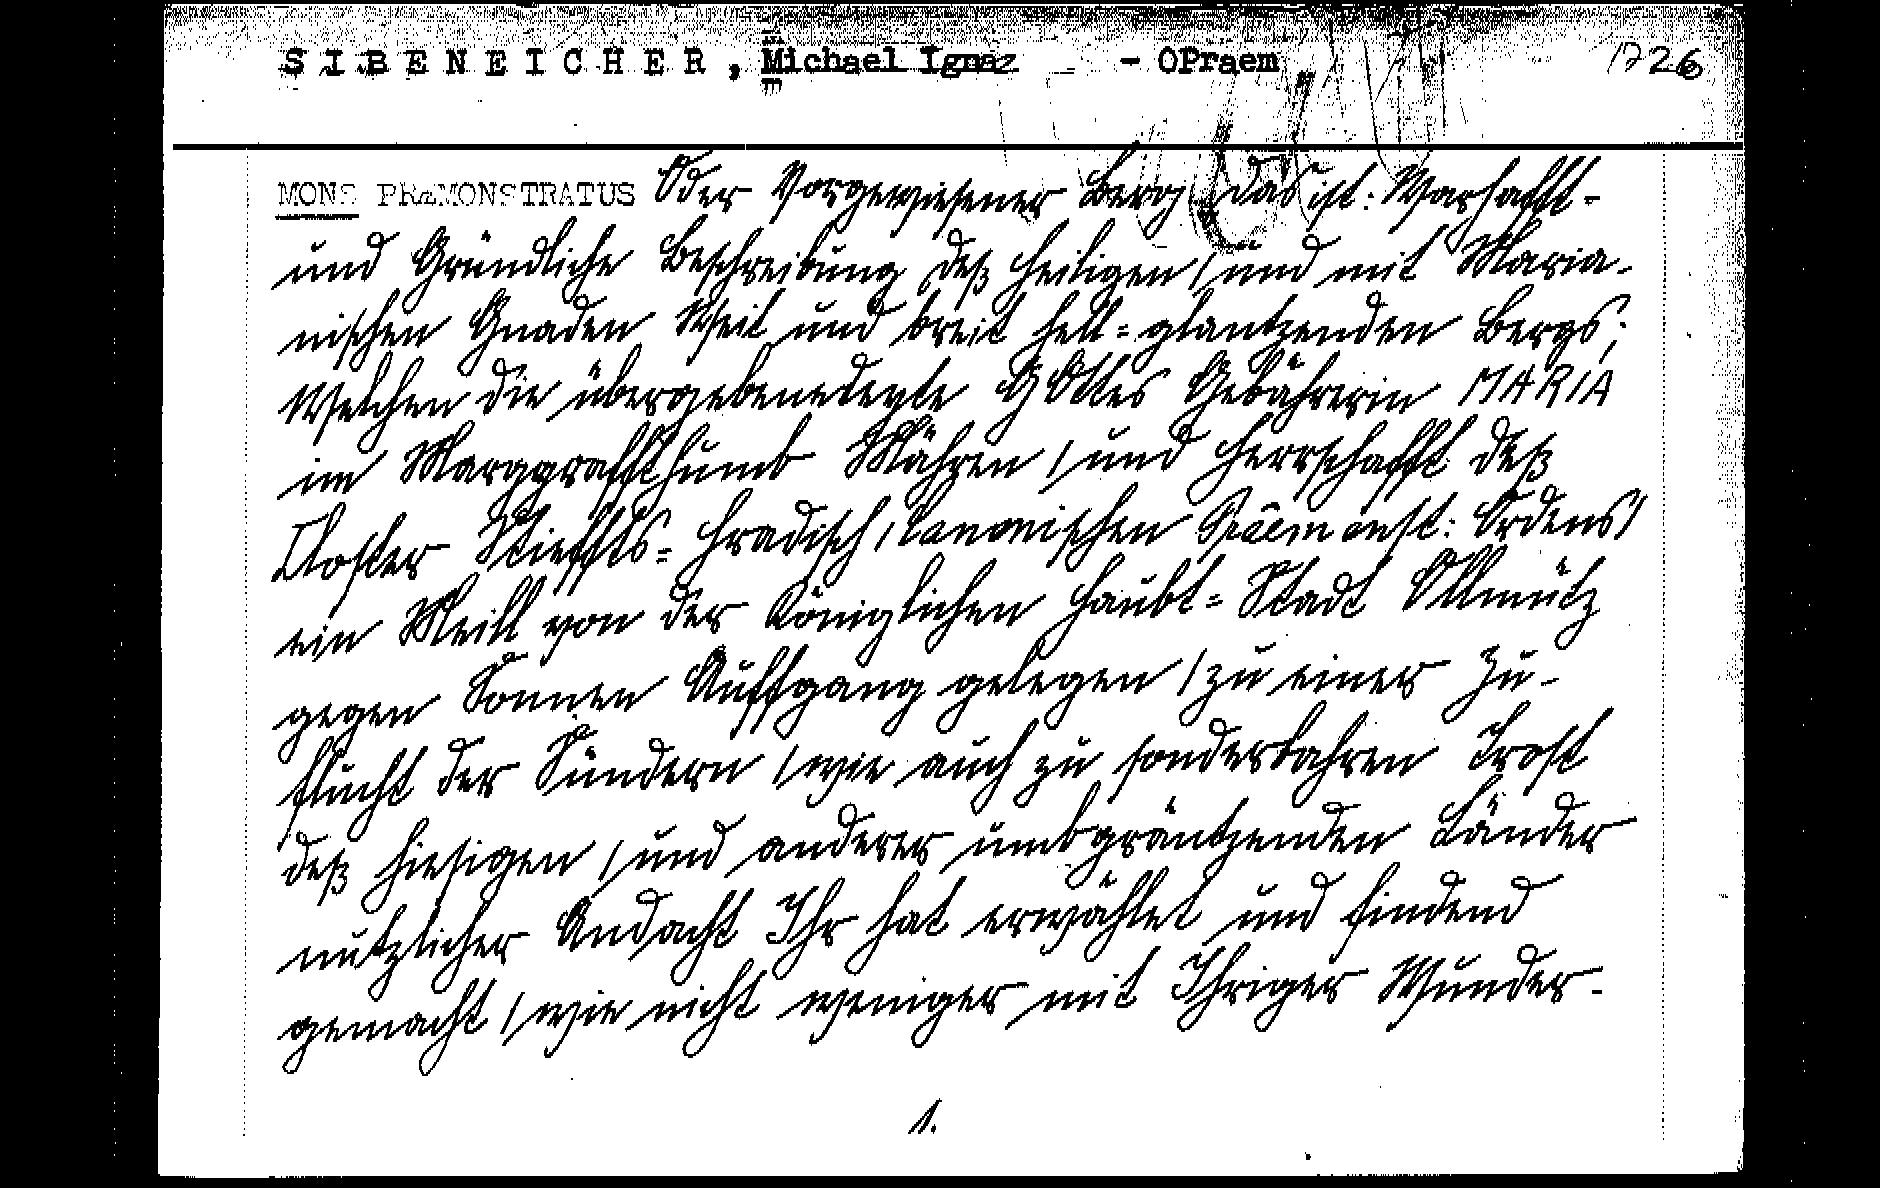 SIBENEICHER, Michael Ignaz - OPraem 1726
MONS PRæMONSTRATUS Oder Vorgewiesener Berg das ist: Warhafft-
und Gründliche Beschreibung deß heiligen / und mit Maria-
nischen Gnaden Weit und breit hell=glantzenden Bergs;
Welchen die übergebenedeyte GOttes Gebährerin MARIA
im Marggraffthumb Mähren / und Herrschafft deß
Closter Stieffts=Hradisch / Canonischen Præmonst: Ordens /
ein Meill von der Königlichen Haubt=Stadt Ollmütz
gegen Sonnen Auffgang gelegen / zu einer Zu-
flucht der Sündern / wie auch zu sonderbahren Trost
deß hiesigen / und anderer umbgräntzenden Länder
nutzlicher Andacht Ihr hat erwählet und findend
gemacht / wie nicht weniger mit Ihriger Wunder-
1.